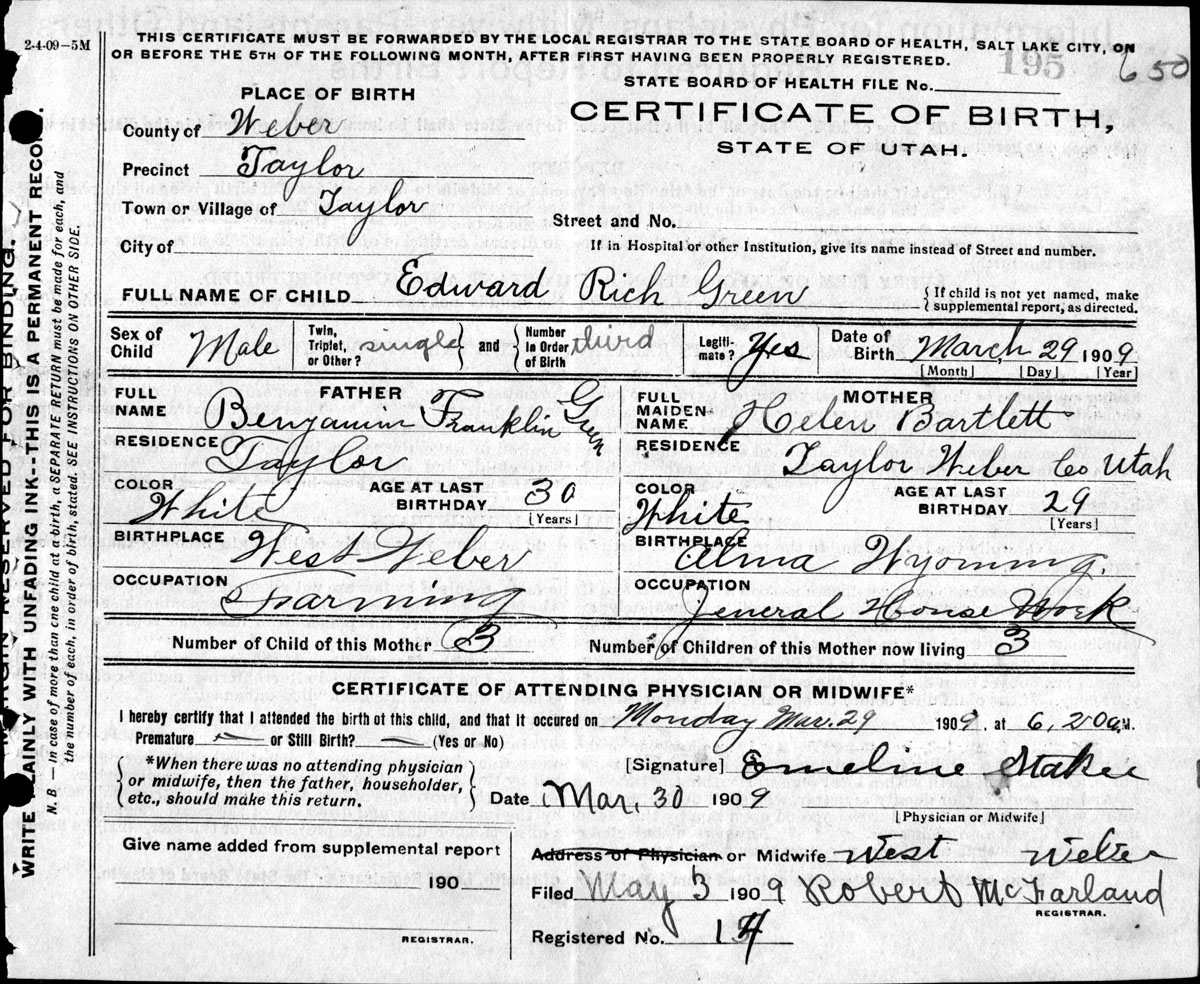 2-4-09—5M
THIS CERTIFICATE MUST BE FORWARDED BY THE LOCAL REGISTRAR TO THE STATE BOARD OF HEALTH, SALT LAKE CITY, ON
OR BEFORE THE 5TH OF THE FOLLOWING MONTH, AFTER FIRST HAVING BEEN PROPERLY REGISTERED.
195
650
STATE BOARD OF HEALTH FILE No.
PLACE OF BIRTH
CERTIFICATE OF BIRTH,
STATE OF UTAH.
County of Weber
Precinct Taylor
Town or Village of Taylor
Street and No.
City of
If in Hospital or other Institution, give its name instead of Street and number.
FULL NAME OF CHILD Edward Rich Green
{ If child is not yet named, make
supplemental report, as directed.
Sex of Child Male
Twin, Triplet, or Other? single } and { Number in Order of Birth third
Legiti-mate? Yes
Date of Birth March 29 1909
[Month] [Day] [Year]
FATHER
FULL NAME Benjamin Franklin Green
MOTHER
FULL MAIDEN NAME Helen Bartlett
RESIDENCE Taylor
RESIDENCE Taylor Weber Co Utah
COLOR White
AGE AT LAST BIRTHDAY 30
[Years]
COLOR White
AGE AT LAST BIRTHDAY 29
[Years]
BIRTHPLACE West Weber
BIRTHPLACE Alma Wyoming.
OCCUPATION Farming
OCCUPATION General House Work
Number of Child of this Mother 3
Number of Children of this Mother now living 3
CERTIFICATE OF ATTENDING PHYSICIAN OR MIDWIFE*
I hereby certify that I attended the birth of this child, and that it occured on Monday Mar. 29 1909, at 6,20 a.M.
Premature — or Still Birth? — (Yes or No)
{ *When there was no attending physician
or midwife, then the father, householder,
etc., should make this return. }
[Signature] Emeline
Date Mar. 30 1909
[Physician or Midwife]
Give name added from supplemental report
190
REGISTRAR.
Address of Physician or Midwife West Weber
Filed May 3 1909 Robert McFarland
REGISTRAR.
Registered No. 14
MARGIN RESERVED FOR BINDING.
WRITE PLAINLY WITH UNFADING INK--THIS IS A PERMANENT RECORD.
N. B — In case of more than one child at a birth, a SEPARATE RETURN must be made for each, and
the number of each, in order of birth, stated. SEE INSTRUCTIONS ON OTHER SIDE.